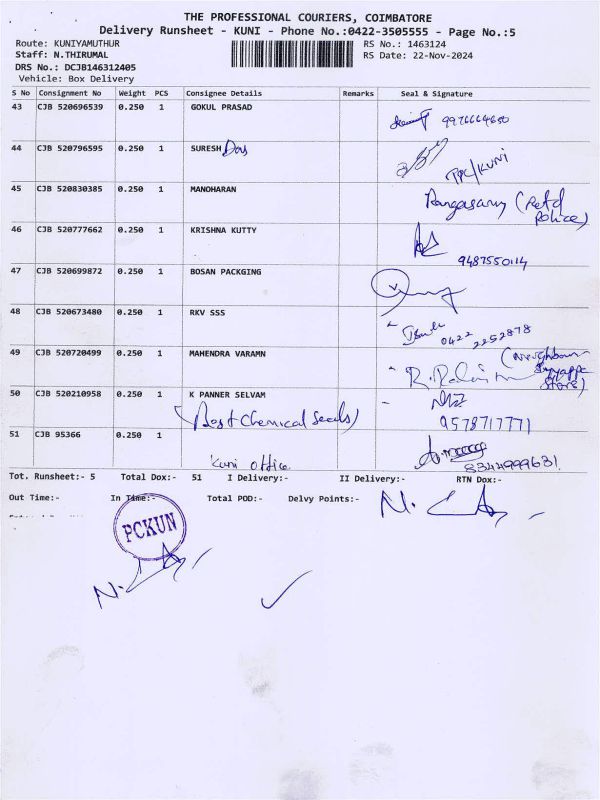 THE PROFESSIONAL COURIERS, COIMBATORE
Delivery Runsheet - KUNI - Phone No.:0422-3505555 - Page No.:5
Route: KUNIYAMUTHUR RS No.: 1463124
Staff: N.THIRUMAL RS Date: 22-Nov-2024
DRS No.: DCJB146312405
Vehicle: Box Delivery
S No Consignment No Weight PCS Consignee Details Remarks Seal & Signature
43 CJB 520696539 0.250 1 GOKUL PRASAD
44 CJB 520796595 0.250 1 SURESH Das
TPC/KUNI
45 CJB 520830385 0.250 1 MANOHARAN
Rangasamy (Retd
Police)
46 CJB 520777662 0.250 1 KRISHNA KUTTY
9487550114
47 CJB 520699872 0.250 1 BOSAN PACKGING
48 CJB 520673480 0.250 1 RKV SSS
0422 2252878
49 CJB 520720499 0.250 1 MAHENDRA VARAMN
(Neighbour
Store)
50 CJB 520210958 0.250 1 K PANNER SELVAM
(Best Chemical Seeds)
9578717771
51 CJB 95366 0.250 1
Kuni Office
8344999631
Tot. Runsheet:- 5 Total Dox:- 51 I Delivery:- II Delivery:- RTN Dox:-
Out Time:- In Time:- Total POD:- Delvy Points:-
PCKUN